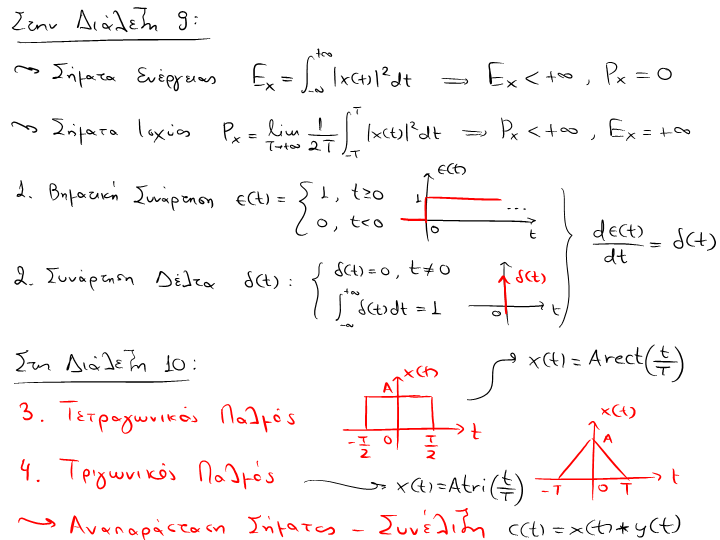 Στην Διάλεξη 9:
~> Σήματα Ενέργειας E_x = ∫_{-∞}^{+∞} |x(t)|² dt ⇒ E_x < +∞ , P_x = 0
~> Σήματα Ισχύος P_x = lim_{T→+∞} 1/2T ∫_{-T}^{T} |x(t)|² dt ⇒ P_x < +∞ , E_x = +∞
1. Βηματική Συνάρτηση ε(t) = { 1, t≥0
0, t<0
ε(t) 1 0 ... t
dε(t)/dt = δ(t)
2. Συνάρτηση Δέλτα δ(t): { δ(t) = 0, t ≠ 0
∫_{-∞}^{+∞} δ(t) dt = 1
δ(t) 0 t
Στη Διάλεξη 10:
x(t) = Arect(t/T)
3. Τετραγωνικός Παλμός
x(t) A -T/2 0 T/2 t
4. Τριγωνικός Παλμός → x(t) = Atri(t/T)
x(t) A -T 0 T t
~> Αναπαράσταση Σήματος - Συνέλιξη c(t) = x(t) * y(t)